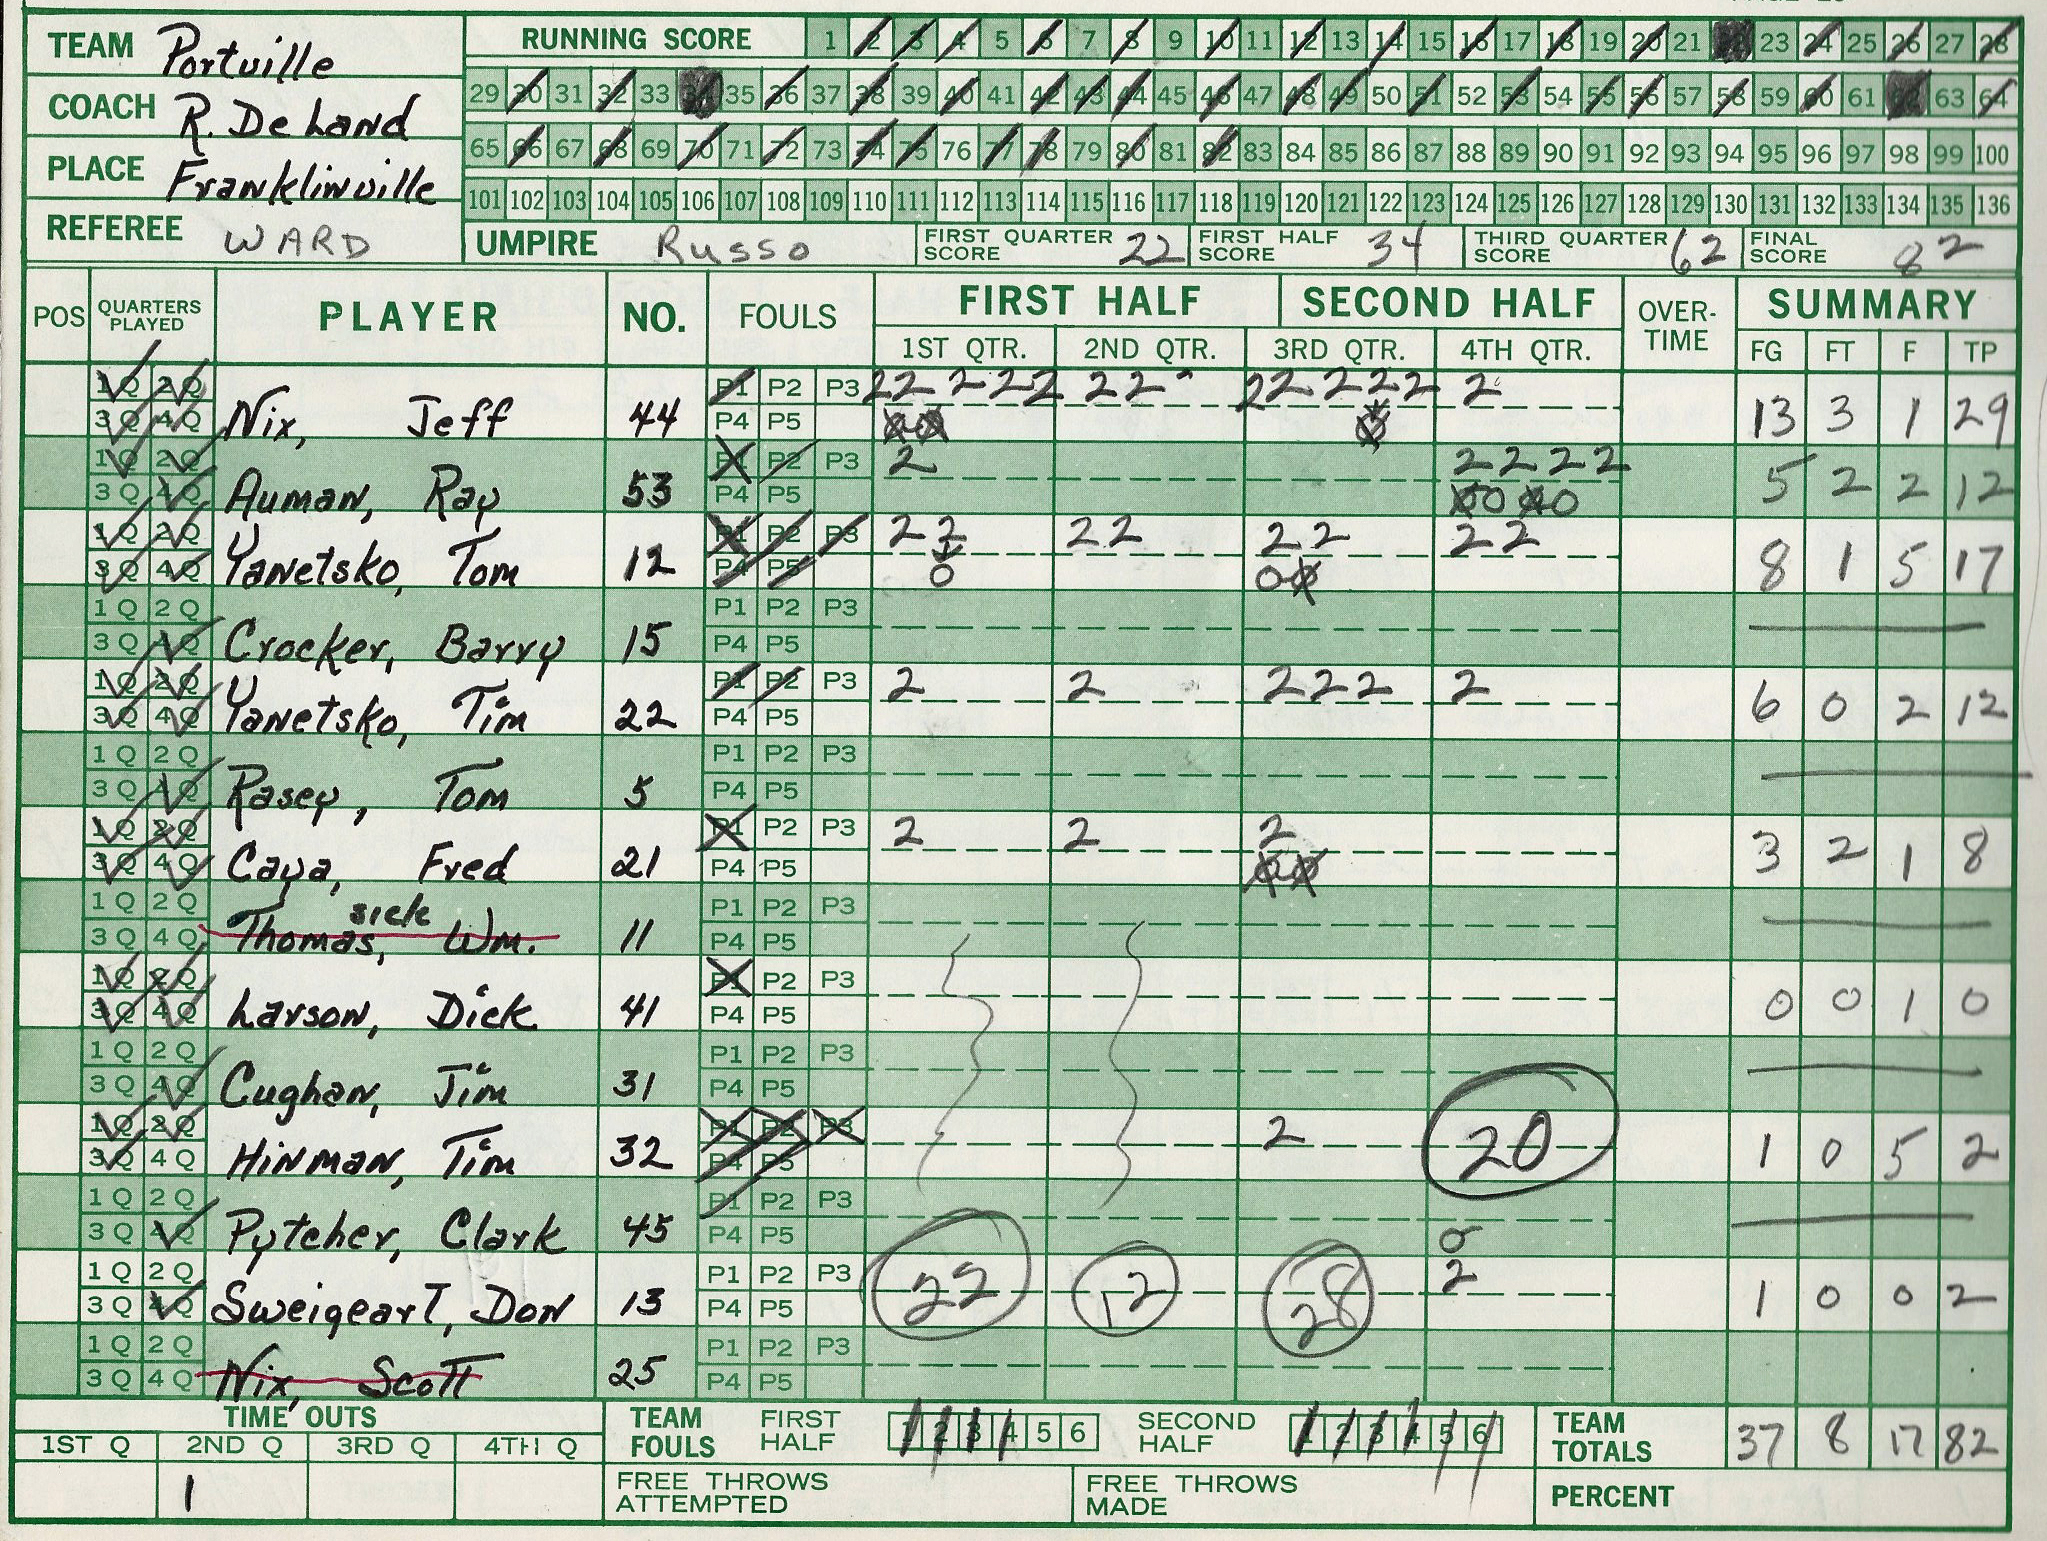 TEAM Portville
COACH R. DeLand
PLACE Franklinville
REFEREE WARD
RUNNING SCORE 1 2 3 4 5 6 7 8 9 10 11 12 13 14 15 16 17 18 19 20 21 23 24 25 26 27 28
29 30 31 32 33 34 35 36 37 38 39 40 41 42 43 44 45 46 47 48 49 50 51 52 53 54 55 56 57 58 59 60 61 62 63 64
65 66 67 68 69 70 71 72 73 74 75 76 77 78 79 80 81 82 83 84 85 86 87 88 89 90 91 92 93 94 95 96 97 98 99 100
101 102 103 104 105 106 107 108 109 110 111 112 113 114 115 116 117 118 119 120 121 122 123 124 125 126 127 128 129 130 131 132 133 134 135 136
UMPIRE Russo FIRST QUARTER SCORE 22 FIRST HALF SCORE 34 THIRD QUARTER SCORE 62 FINAL SCORE 82
POS QUARTERS PLAYED PLAYER NO. FOULS FIRST HALF SECOND HALF OVER-TIME SUMMARY
1ST QTR. 2ND QTR. 3RD QTR. 4TH QTR. FG FT F TP
1Q 2Q P1 P2 P3 22 222 22 22 222 2
3Q 4Q Nix, Jeff 44 P4 P5 00 0 13 3 1 29
1Q 2Q P1 P2 P3 2 2222
3Q 4Q Auman, Ray 53 P4 P5 00 00 5 2 2 12
1Q 2Q P1 P2 P3 22 22 22 22
3Q 4Q Yanetsko, Tom 12 P4 P5 0 00 8 1 5 17
1Q 2Q P1 P2 P3
3Q 4Q Crocker, Barry 15 P4 P5
1Q 2Q P1 P2 P3 2 2 222 2
3Q 4Q Yanetsko, Tim 22 P4 P5 6 0 2 12
1Q 2Q P1 P2 P3
3Q 4Q Rasey, Tom 5 P4 P5
1Q 2Q P1 P2 P3 2 2 2
3Q 4Q Caya, Fred 21 P4 P5 00 3 2 1 8
1Q 2Q sick P1 P2 P3
3Q 4Q Thomas, Wm. 11 P4 P5
1Q 2Q P1 P2 P3
3Q 4Q Larson, Dick 41 P4 P5 0 0 1 0
1Q 2Q P1 P2 P3
3Q 4Q Cughan, Jim 31 P4 P5
1Q 2Q P1 P2 P3 2 20
3Q 4Q Hinman, Tim 32 P4 P5 1 0 5 2
1Q 2Q P1 P2 P3
3Q 4Q Pytcher, Clark 45 P4 P5 0
1Q 2Q P1 P2 P3 22 12 28 2
3Q 4Q Sweigeart, Don 13 P4 P5 1 0 0 2
1Q 2Q P1 P2 P3
3Q 4Q Nix, Scott 25 P4 P5
TIME OUTS TEAM FOULS FIRST HALF 1 2 3 4 5 6 SECOND HALF 1 2 3 4 5 6 TEAM TOTALS 37 8 17 82
1ST Q 2ND Q 3RD Q 4TH Q
1 FREE THROWS ATTEMPTED FREE THROWS MADE PERCENT